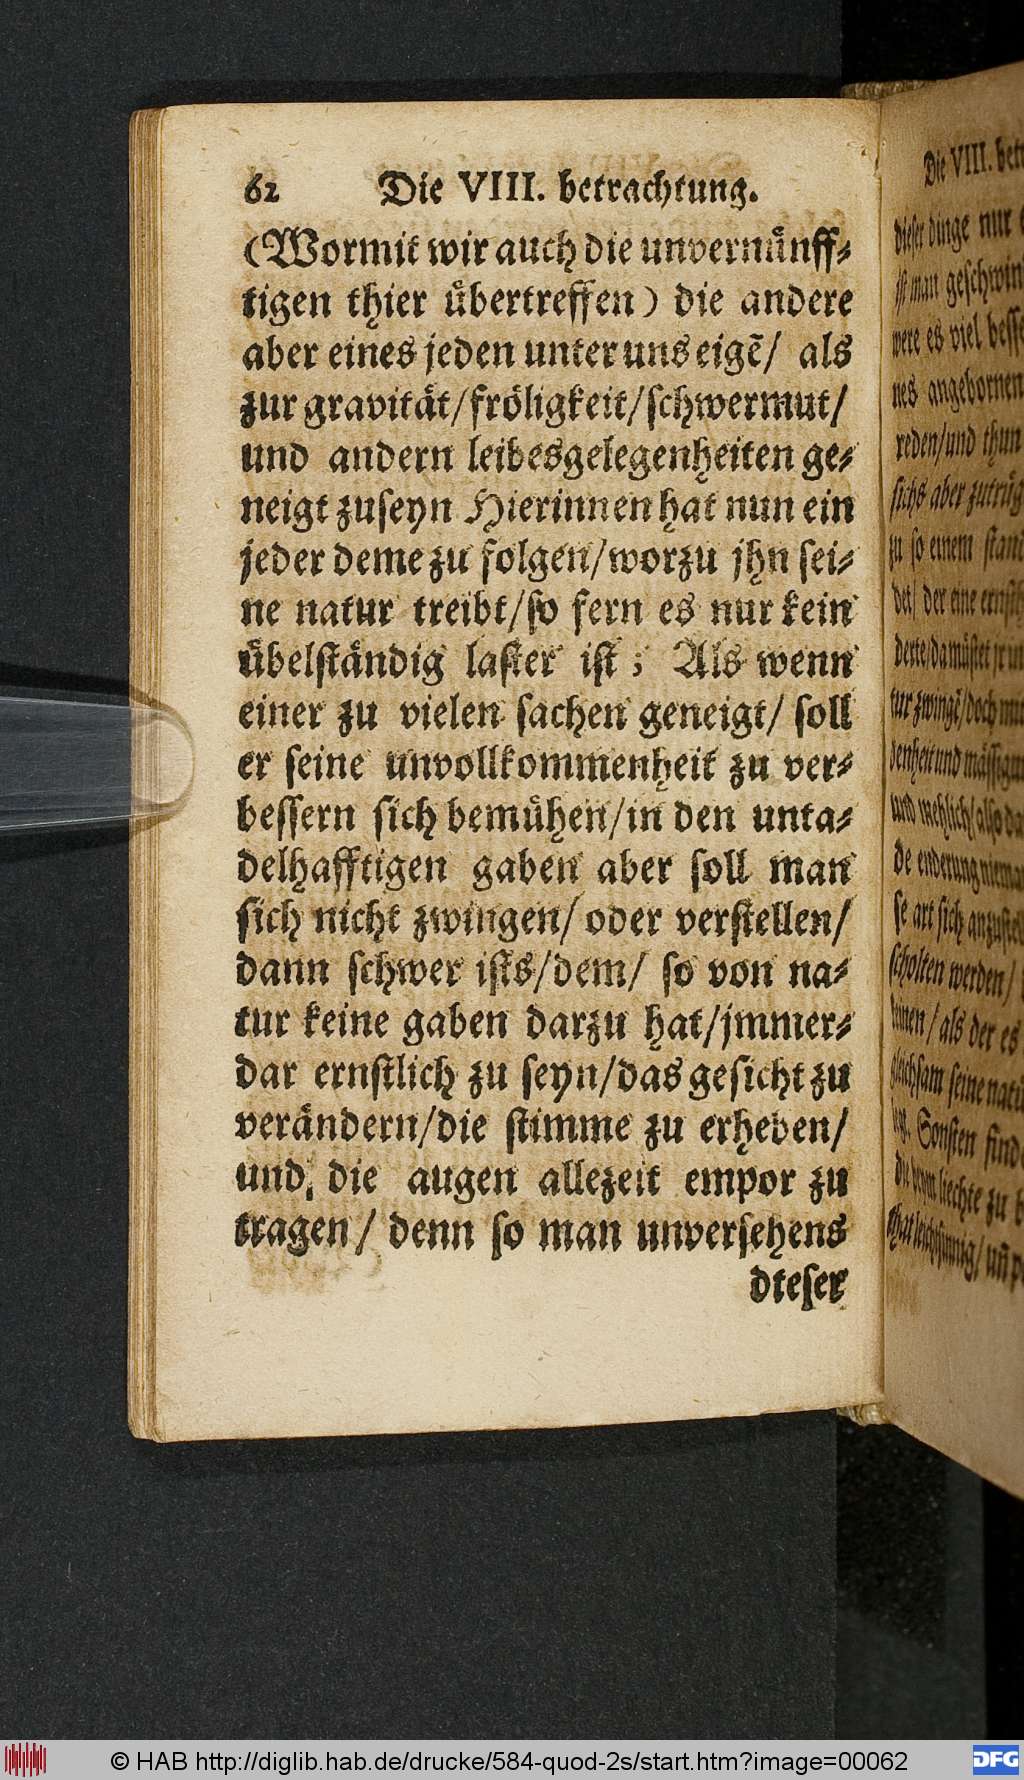 62 Die VIII. betrachtung.
(Wormit wir auch die unvernünff⸗
tigen thier übertreffen) die andere
aber eines jeden unter uns eigẽ/ als
zur gravität/fröligkeit/schwermut/
und andern leibesgelegenheiten ge⸗
neigt zuseyn Hierinnen hat nun ein
jeder deme zu folgen/worzu jhn sei⸗
ne natur treibt/so fern es nur kein
übelständig laster ist; Als wenn
einer zu vielen sachen geneigt/ soll
er seine unvollkommenheit zu ver⸗
bessern sich bemühen/in den unta⸗
delhafftigen gaben aber soll man
sich nicht zwingen/ oder verstellen/
dann schwer ists/dem/ so von na⸗
tur keine gaben darzu hat/jmmer⸗
dar ernstlich zu seyn/das gesicht zu
verändern/die stimme zu erheben/
und, die augen allezeit empor zu
tragen/ denn so man unversehens
dieser
Die VIII.
dieser dinge nur
ist man
were es viel
nes angebornen
reden/und thun
sichs aber
zu so einem
det/ der eine
denheit und
und
de enderung
se art sich
scholten werden/
/als der es
gleichsam seine
Sonsten
liechte zu
© HAB http://diglib.hab.de/drucke/584-quod-2s/start.htm?image=00062
DFG